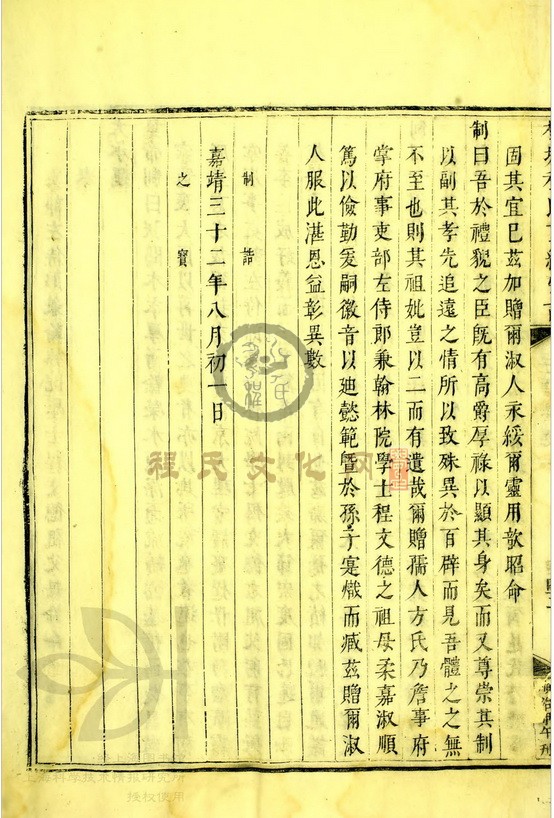 固其宜巳茲加贈爾淑人永綏爾靈用歆昭命
制曰吾於禮貌之臣既有高爵厚祿以顯其身矣而又尊崇其制
以副其孝先追遠之情所以致殊異於百辟而見吾體之之無
不至也則其祖妣豈以二而有遺哉爾贈孺人方氏乃詹事府
掌府事吏部左侍郎兼翰林院學士程文德之祖母柔嘉淑順
篤以儉勤爰嗣徽音以廸懿範曁於孫子寔熾而臧茲贈爾淑
人服此湛恩益彰異數
嘉靖三十二年八月初一日
制誥
之寶
程氏文化网
科学技术情报研究所
授权使用